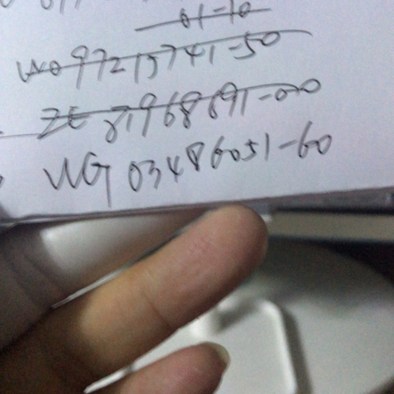 01-10
WO 97215741-50
ZE 81968691-00
WG 03486051-60